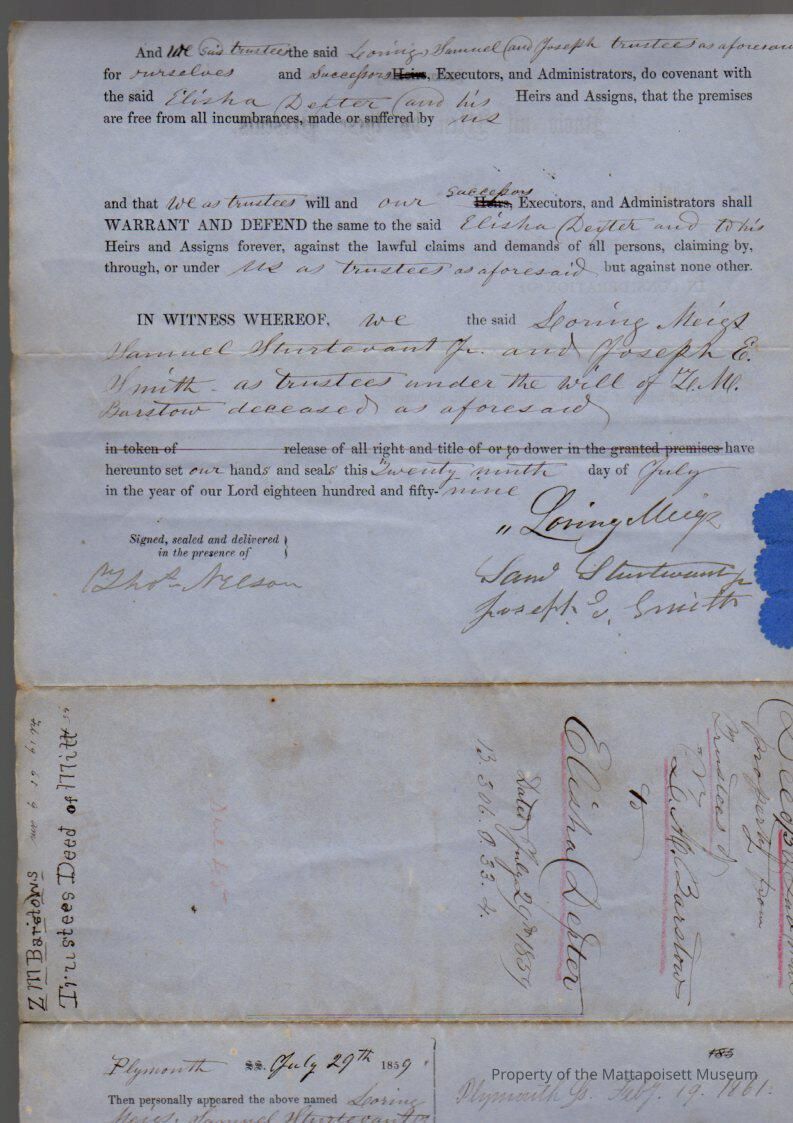 And we said trustees the said Loring, Samuel and Joseph trustees as aforesaid
for ourselves and Successors Heirs, Executors, and Administrators, do covenant with
the said Elisha Dexter and his Heirs and Assigns, that the premises
are free from all incumbrances, made or suffered by us
successors
and that we as trustees will and our Heirs, Executors, and Administrators shall
WARRANT AND DEFEND the same to the said Elisha Dexter and to his
Heirs and Assigns forever, against the lawful claims and demands of all persons, claiming by,
through, or under us as trustees as aforesaid but against none other.
IN WITNESS WHEREOF, we the said Loring Meigs
Samuel Sturtevant Jr. and Joseph E.
Smith as trustees under the will of Z. M.
Barstow deceased as aforesaid
in token of release of all right and title of or to dower in the granted premises have
hereunto set our hands and seals this Twenty ninth day of July
in the year of our Lord eighteen hundred and fifty-nine
Signed, sealed and delivered
in the presence of
Thos. Nelson
Loring Meigs
Saml Sturtevant Jr
Joseph E. Smith
Z M Barstows
Trustees Deed of Mill
property from
Trustees of
Z. M. Barstow
to
Elisha Dexter
Dated July 29th 1859
B. 306. P. 33. 4.
Plymouth SS. July 29th 1859
Then personally appeared the above named Loring
Meigs, Samuel Sturtevant Jr
185
Plymouth Ss. Feby. 19. 1861.
Property of the Mattapoisett Museum